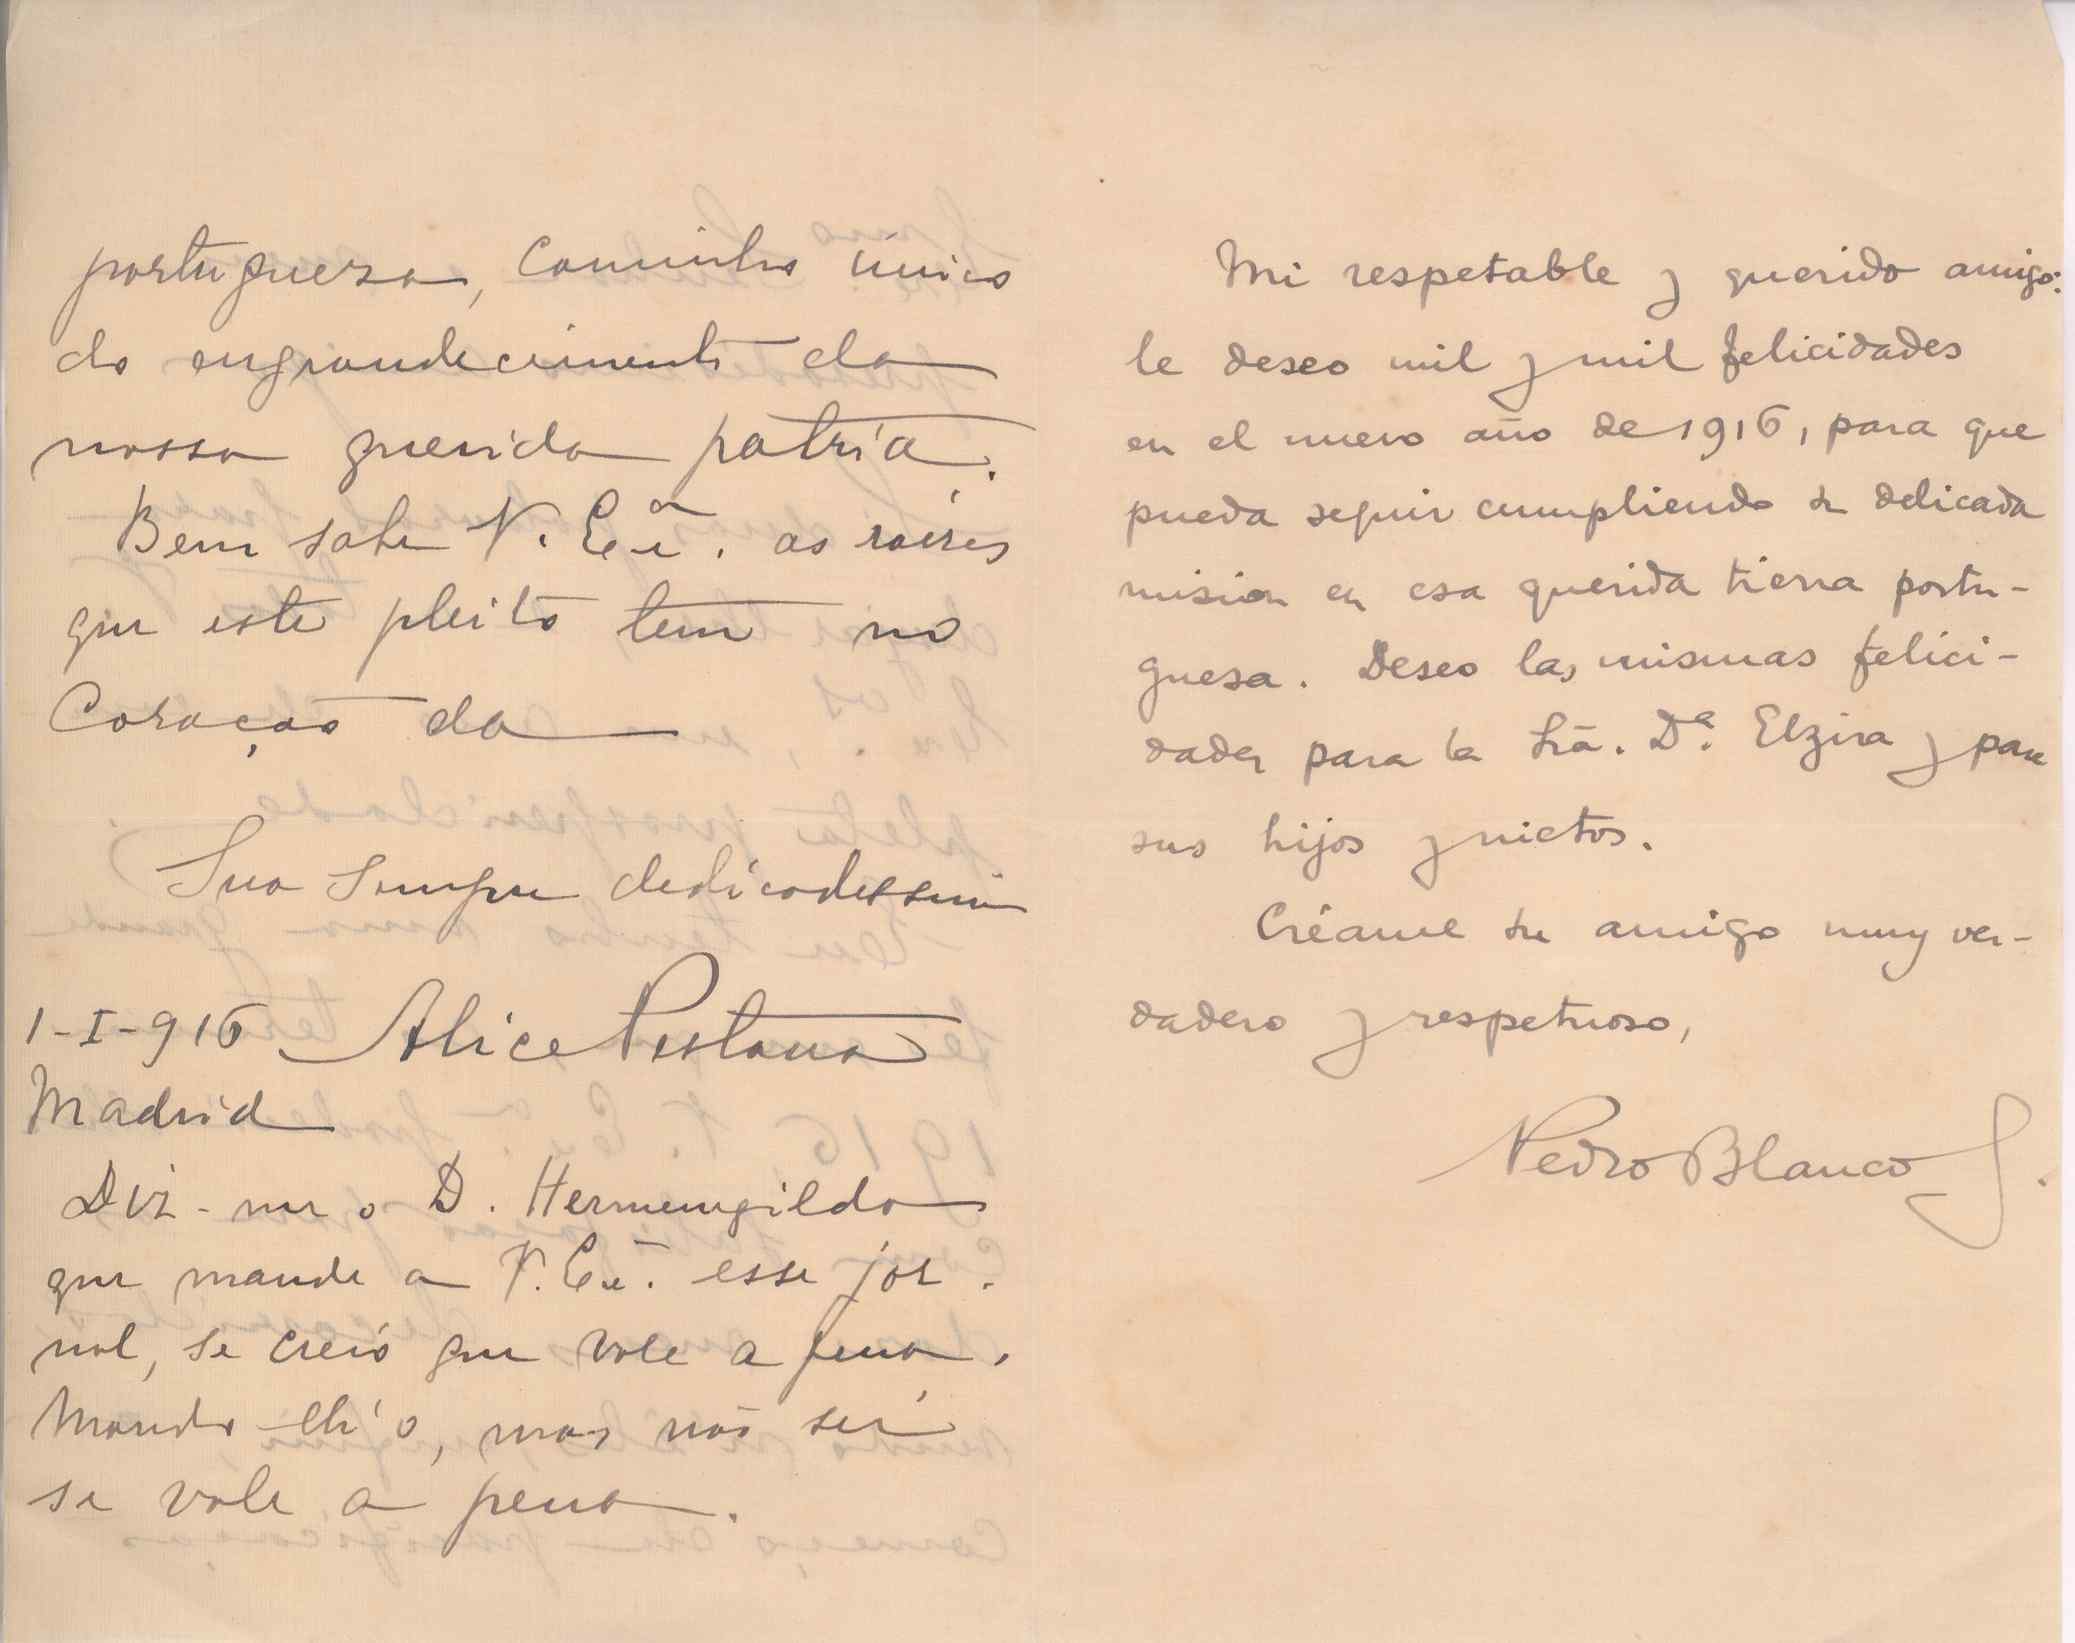 portugueza, Caminho unico
do engrandecimento da
nossa querida patria.
Bem sabe V. Ex.ª as raizes
que este pleito tem no
Coração da
Sua sempre dedicadissima
1-I-916 Alice Pestana
Madrid
Diz-me o D. Hermengildo
que mande a V. Ex.ª esse jor-
nal, se creio que vale a pena.
Mando-lh'o, mas não sei
se vale a pena.
Mi respetable y querido amigo:
le deseo mil y mil felicidades
en el nuevo año de 1916, para que
pueda seguir cumpliendo su delicada
mision en esa querida tierra portu-
guesa. Deseo las mismas felici-
dades para la Srã. Dª. Elzira y para
sus hijos y nietos.
Créame su amigo muy ver-
dadero y respetuoso,
Pedro Blanco S.